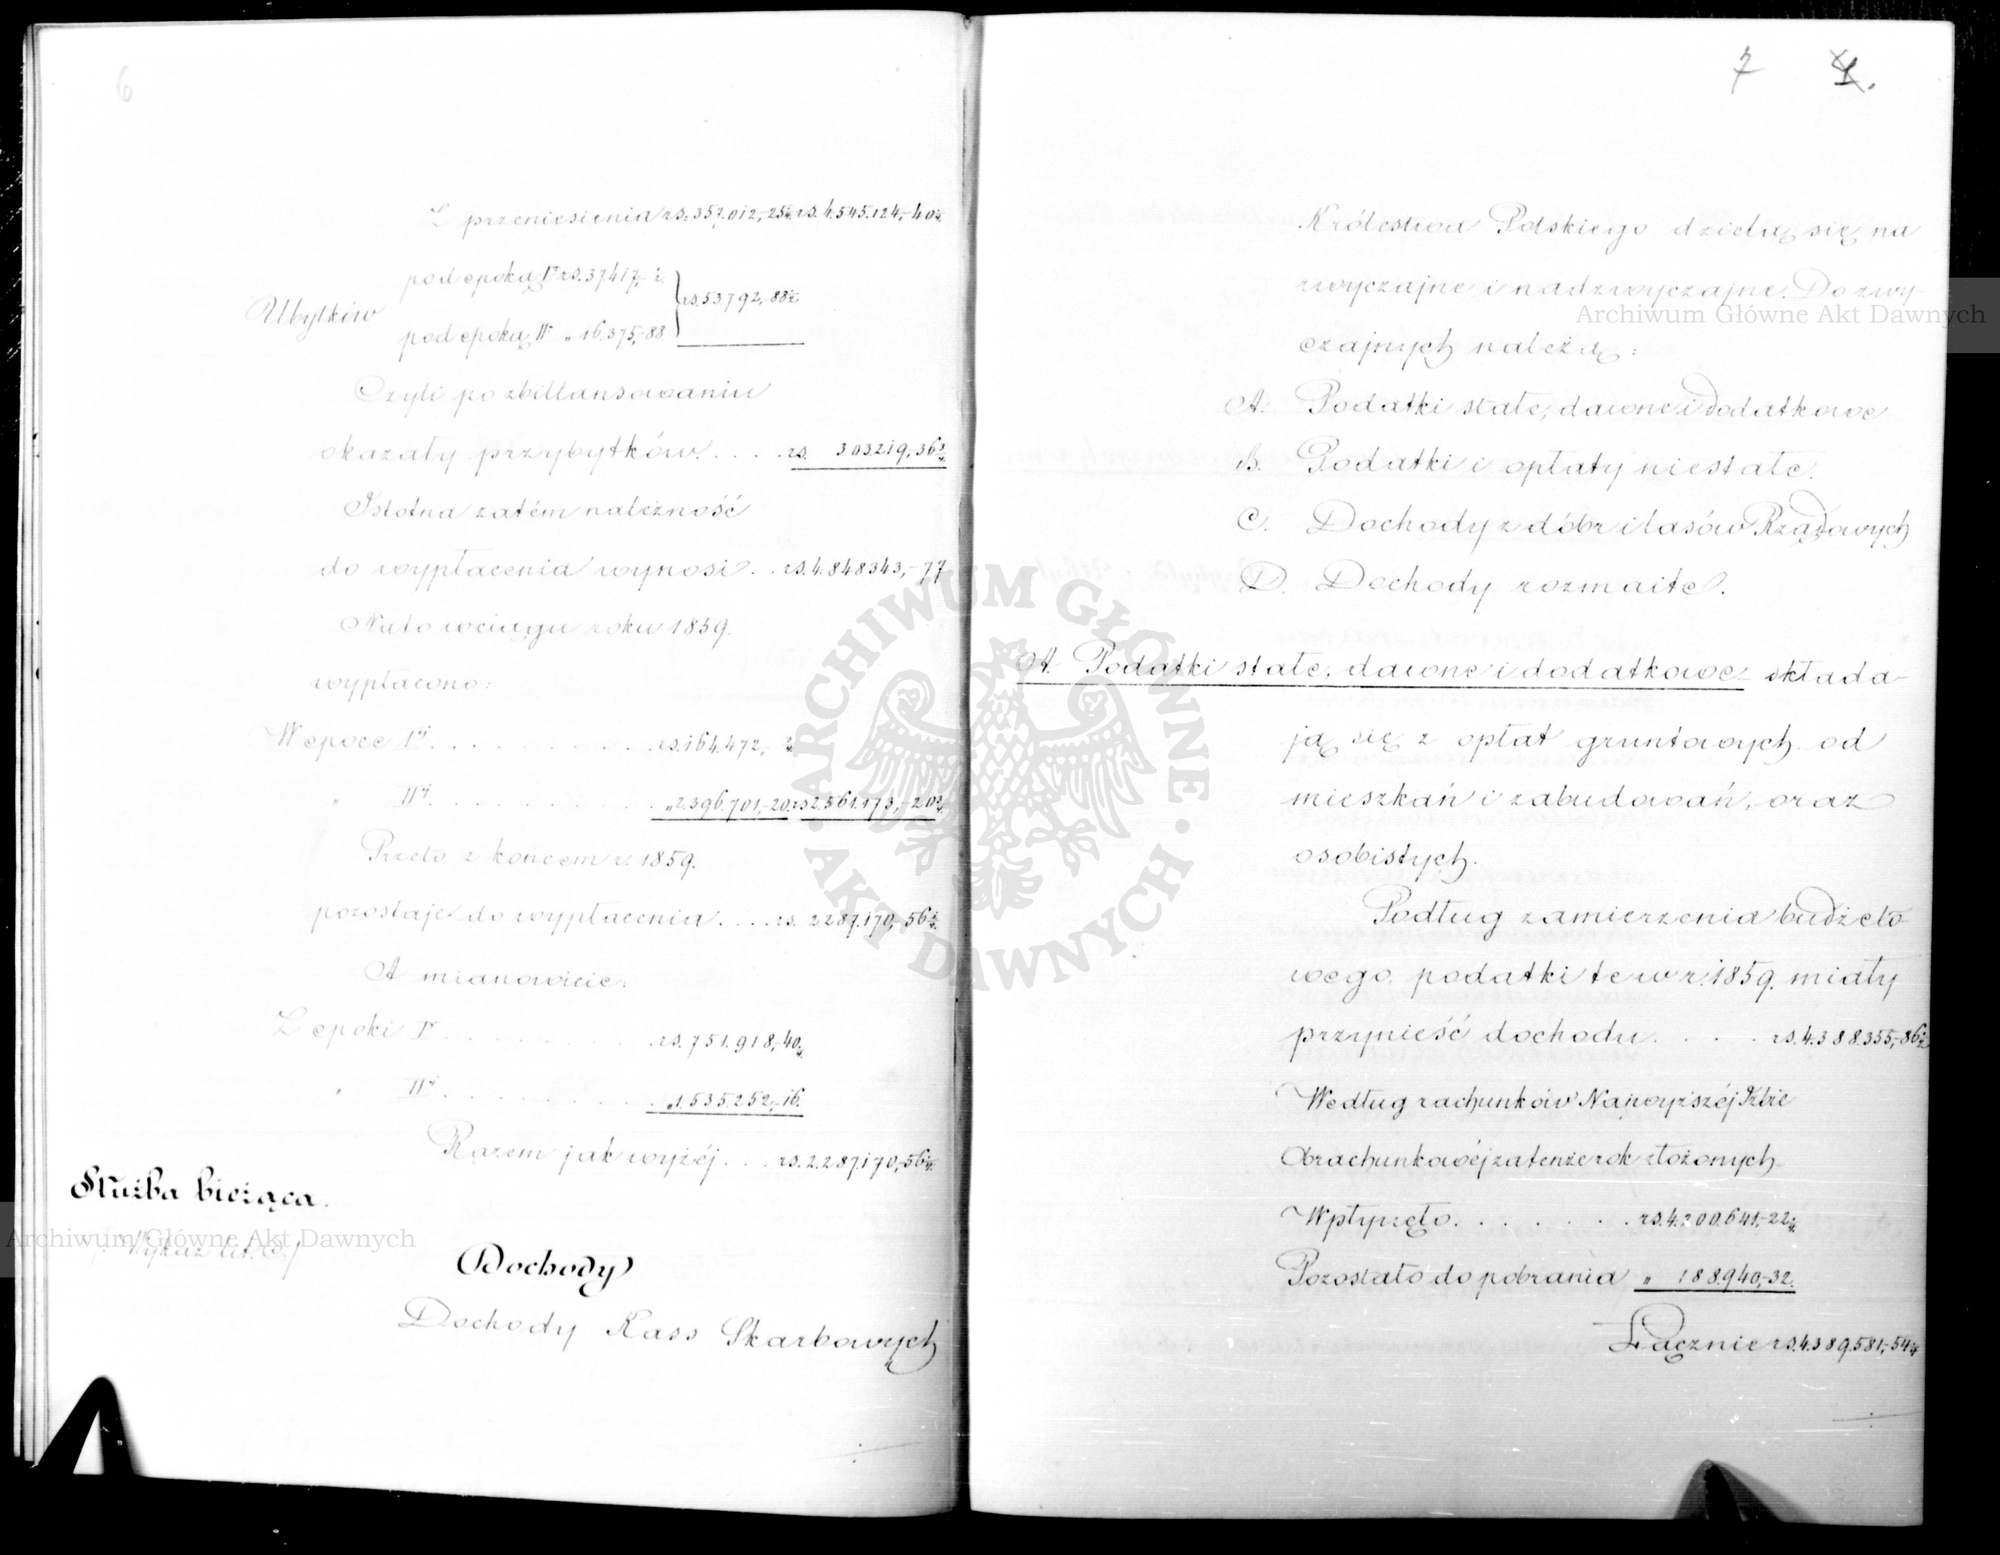 6
Z przeniesienia rs. 357.012,-25½ rs. 4.545.124,-40¾
pod epoką Iʳ rs. 37.417,-½
Ubytków
rs. 53.792,-88½
pod epoką IIʳ „ 16.375,-88
Czyli po zbillansowaniu
okazały przybytków. . . . . rs. 303.219,-36¾
Istotna zatém należność
do wypłacenia wynosi . . rs. 4.848.343,-77
Na to w ciągu roku 1859.
wypłacono:
W epoce Iéj . . . . . . . . . . rs. 164.472,-
„ IIéj . . . . . . . . . . „ 2.396.701,-20. rs. 2.561.173,-20
Przeto z końcem r. 1859.
pozostaje do wypłacenia . . . . rs. 2.287.170,-56
A mianowicie:
Z epoki Iéj . . . . . . . . . rs. 751.918,-40
„ IIéj . . . . . . . . . „ 1.535.252,-16.
Razem jak wyżéj . . . rs. 2.287.170,-56
Służba bieżąca.
Wykaz lit.
Dochody
Dochody Kass Skarbowych
7
Królestwa Polskiego dzielą się na
zwyczajne i nadzwyczajne. Do zwy-
czajnych należą:
A. Podatki stałe, dawne i dodatkowe
B. Podatki i opłaty niestałe.
C. Dochody z dóbr i lasów Rządowych
D. Dochody rozmaite.
A Podatki stałe, dawne i dodatkowe składa-
ją się z opłat gruntowych od
mieszkań i zabudowań, oraz
osobistych.
Podług zamierzenia budżeto
wego, podatki te w r. 1859. miały
przynieść dochodu . . . . rs. 4.388.355,-86½
Według rachunków Najwyższéj Izbie
Obrachunkowéj za tenże rok złożonych
Wpłynęło . . . . . . . rs. 4.200.641,-22
Pozostało do pobrania „ 188.940,-32.
Łącznie rs. 4.389.581,-54
Archiwum Główne Akt Dawnych
Archiwum Główne Akt Dawnych
ARCHIWUM GŁÓWNE · AKT DAWNYCH ·